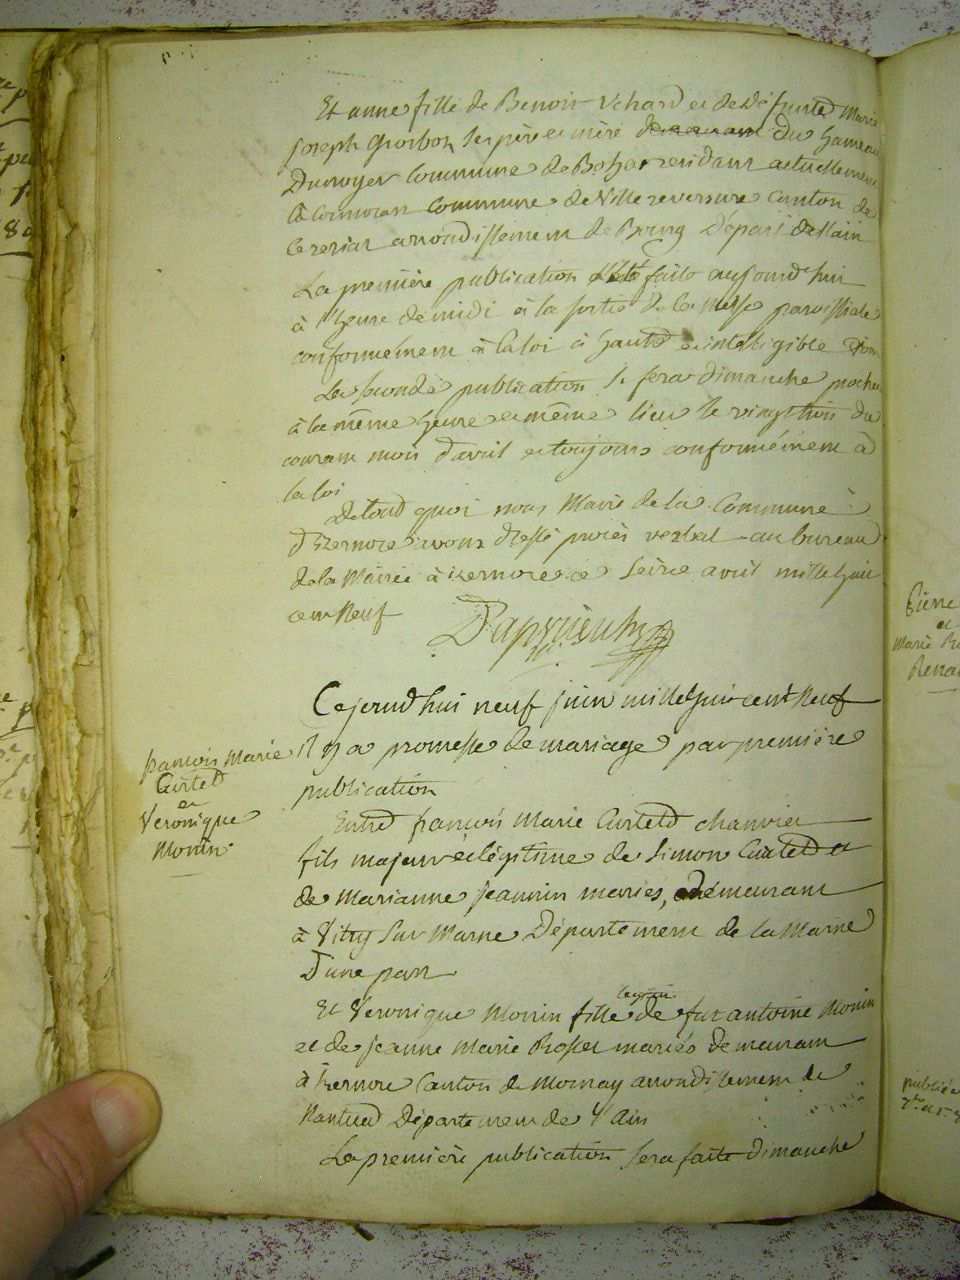 Et anne fille de Benoit Vchard et de défunte Marie
Joseph Gorbon ses père et mère du hameau
Dunoyer Commune de Bohas residant actuellement
à Cormoran Commune de Villereversure Canton de
Cezeriat arrondissement de Bourg Départ. de l'ain
La première publication faite aujourd'hui
à l'heure de midi à la sortie de la Messe paroissiale
conformément à la loi à haute et intelligible
La seconde publication se fera dimanche prochain
à la même heure et même lieu le vingttrois du
courant mois d'avril et toujours conformément à
la loi
De tout quoi nous Maire de la Commune
d'Izernore avons dressé procès verbal au bureau
de la Mairie à izernore ce seize avril mille huit
cent Neuf
Cejourd'hui neuf juin mille huit cent Neuf
il y a promesse de mariage par première
publication
Entre françois Marie Curteld chanvrier
fils majeur et légitime de Simon Curteld et
de Marianne jeannin mariés, demeurant
à Vitry Sur Marne Département de la Marne
D'une part
Et Veronique Monin fille légitime de fut antoine Monin
et de jeanne Marie Rosset mariés demeurant
à izernore Canton de Mornay arrondissement de
Nantua Département de l'Ain
La première publication sera faite dimanche
françois Marie
Curteld
et
Veronique
Monin
Pierre
et
Marie
publiée